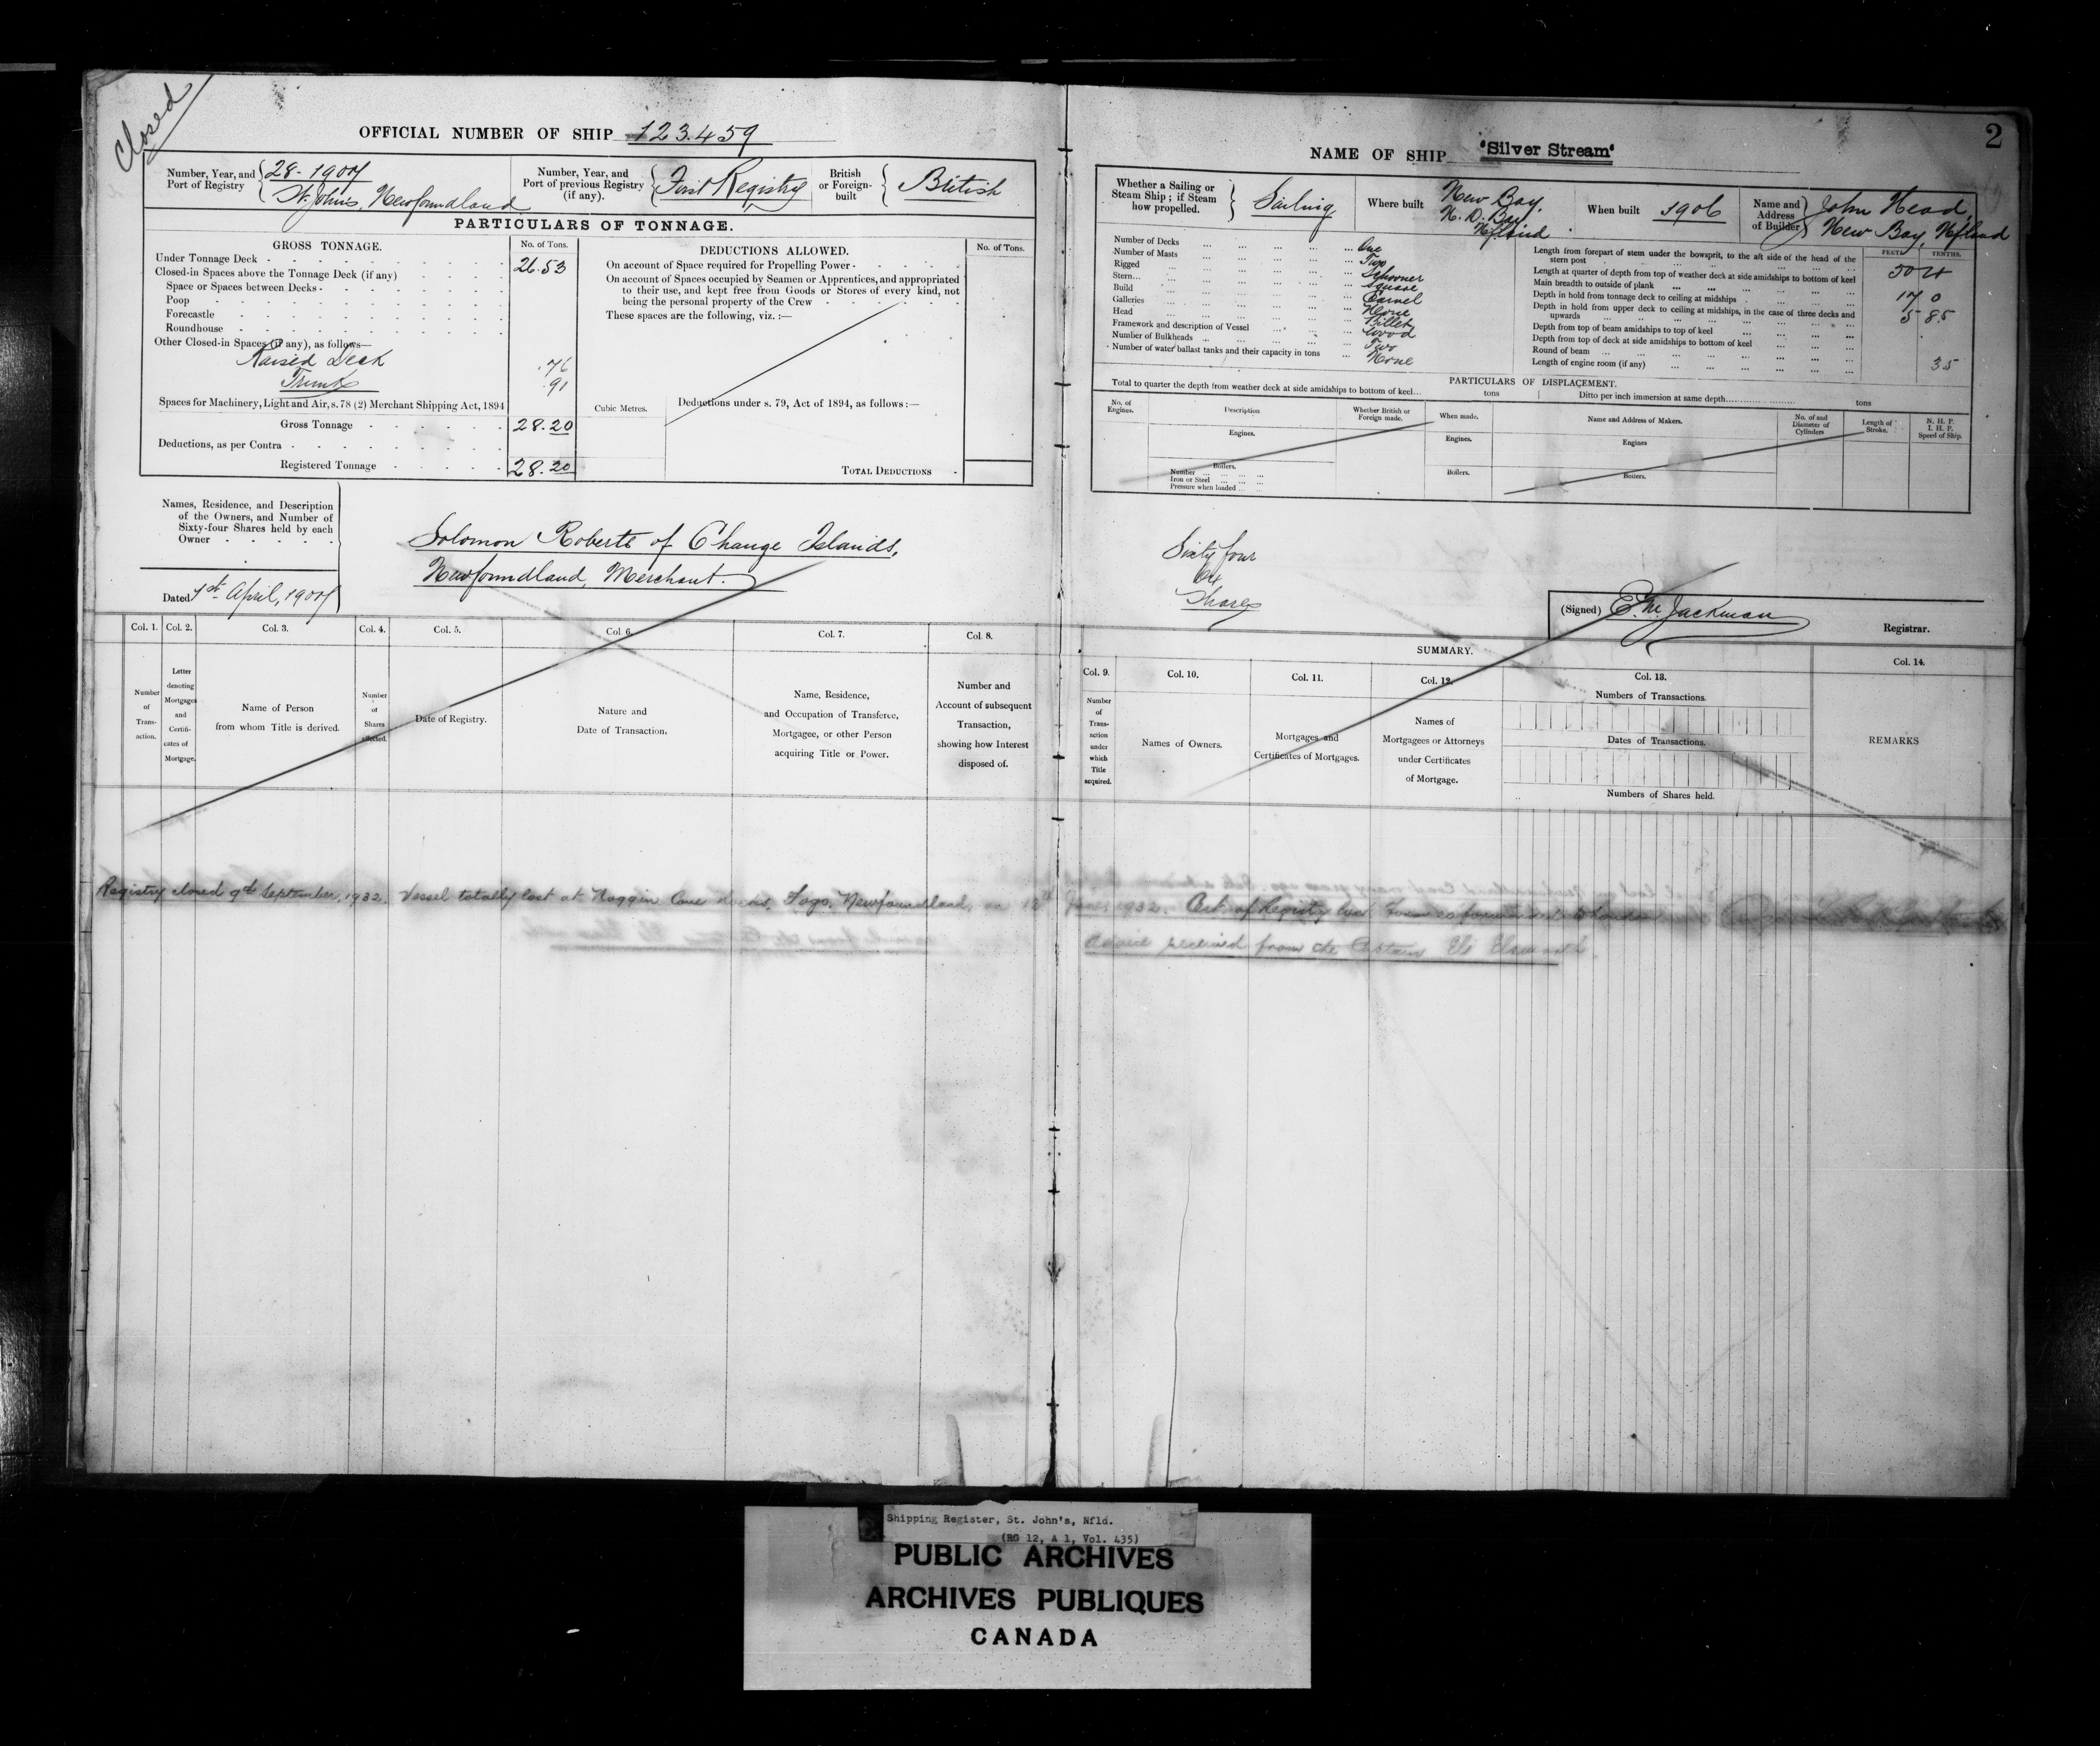 Closed
OFFICIAL NUMBER OF SHIP 123.459
Number, Year, and Port of Registry 28-1907 St. John's, Newfoundland
Number, Year, and Port of previous Registry (if any). First Registry
British or Foreign-built British
PARTICULARS OF TONNAGE.
GROSS TONNAGE. No. of Tons.
Under Tonnage Deck 26.53
Closed-in Spaces above the Tonnage Deck (if any)
Space or Spaces between Decks
Poop
Forecastle
Roundhouse
Other Closed-in Spaces (if any), as follows—
Raised Deck .76
Trunk .91
Spaces for Machinery, Light and Air, s. 78 (2) Merchant Shipping Act, 1894
Gross Tonnage 28.20
Deductions, as per Contra
Registered Tonnage 28.20
DEDUCTIONS ALLOWED. No. of Tons.
On account of Space required for Propelling Power
On account of Spaces occupied by Seamen or Apprentices, and appropriated
to their use, and kept free from Goods or Stores of every kind, not
being the personal property of the Crew
These spaces are the following, viz. :—
Cubic Metres.
Deductions under s. 79, Act of 1894, as follows :—
TOTAL DEDUCTIONS
Names, Residence, and Description
of the Owners, and Number of
Sixty-four Shares held by each
Owner
Solomon Roberts of Change Islands,
Newfoundland, Merchant.
Dated 1st April, 1907
Col. 1. Col. 2. Col. 3. Col. 4. Col. 5. Col. 6. Col. 7. Col. 8.
Number of Trans-action.
Letter denoting Mortgages and Certifi-cates of Mortgage.
Name of Person from whom Title is derived.
Number of Shares affected.
Date of Registry.
Nature and Date of Transaction.
Name, Residence, and Occupation of Transferee, Mortgagee, or other Person acquiring Title or Power.
Number and Account of subsequent Transaction, showing how Interest disposed of.
2
NAME OF SHIP "Silver Stream"
Whether a Sailing or Steam Ship ; if Steam how propelled. Sailing
Where built New Bay, N. D. Bay, Nfland
When built 1906
Name and Address of Builder John Head, New Bay, Nfland
Number of Decks One
Number of Masts Two
Rigged Schooner
Stern Square
Build Carvel
Galleries None
Head Billet
Framework and description of Vessel Wood
Number of Bulkheads Two
Number of water ballast tanks and their capacity in tons None
FEET. TENTHS.
Length from forepart of stem under the bowsprit, to the aft side of the head of the
stern post 50
Length at quarter of depth from top of weather deck at side amidships to bottom of keel
Main breadth to outside of plank 17 0
Depth in hold from tonnage deck to ceiling at midships 5 85
Depth in hold from upper deck to ceiling at midships, in the case of three decks and
upwards
Depth from top of beam amidships to top of keel
Depth from top of deck at side amidships to bottom of keel
Round of beam 35
Length of engine room (if any)
PARTICULARS OF DISPLACEMENT.
Total to quarter the depth from weather deck at side amidships to bottom of keel tons
Ditto per inch immersion at same depth tons
No. of Engines.
Description
Whether British or Foreign made.
When made.
Name and Address of Makers.
No. of and Diameter of Cylinders
Length of Stroke.
N. H. P. I. H. P. Speed of Ship.
Engines. Engines. Engines
Boilers. Boilers. Boilers.
Number
Iron or Steel
Pressure when loaded
Sixty four
64
Shares
(Signed) E. M. Jackman Registrar.
SUMMARY.
Col. 9. Col. 10. Col. 11. Col. 12. Col. 13. Col. 14.
Number of Trans-action under which Title acquired.
Names of Owners.
Mortgages and Certificates of Mortgages.
Names of Mortgagees or Attorneys under Certificates of Mortgage.
Numbers of Transactions.
Dates of Transactions.
Numbers of Shares held.
REMARKS
Registry closed 9th September, 1932. Vessel totally lost at Noggin Cove Fogo, Newfoundland, on 1932. Cert. of Registry
Advice received from the Eli
Shipping Register, St. John's, Nfld.
(RG 12, A 1, Vol. 435)
PUBLIC ARCHIVES
ARCHIVES PUBLIQUES
CANADA